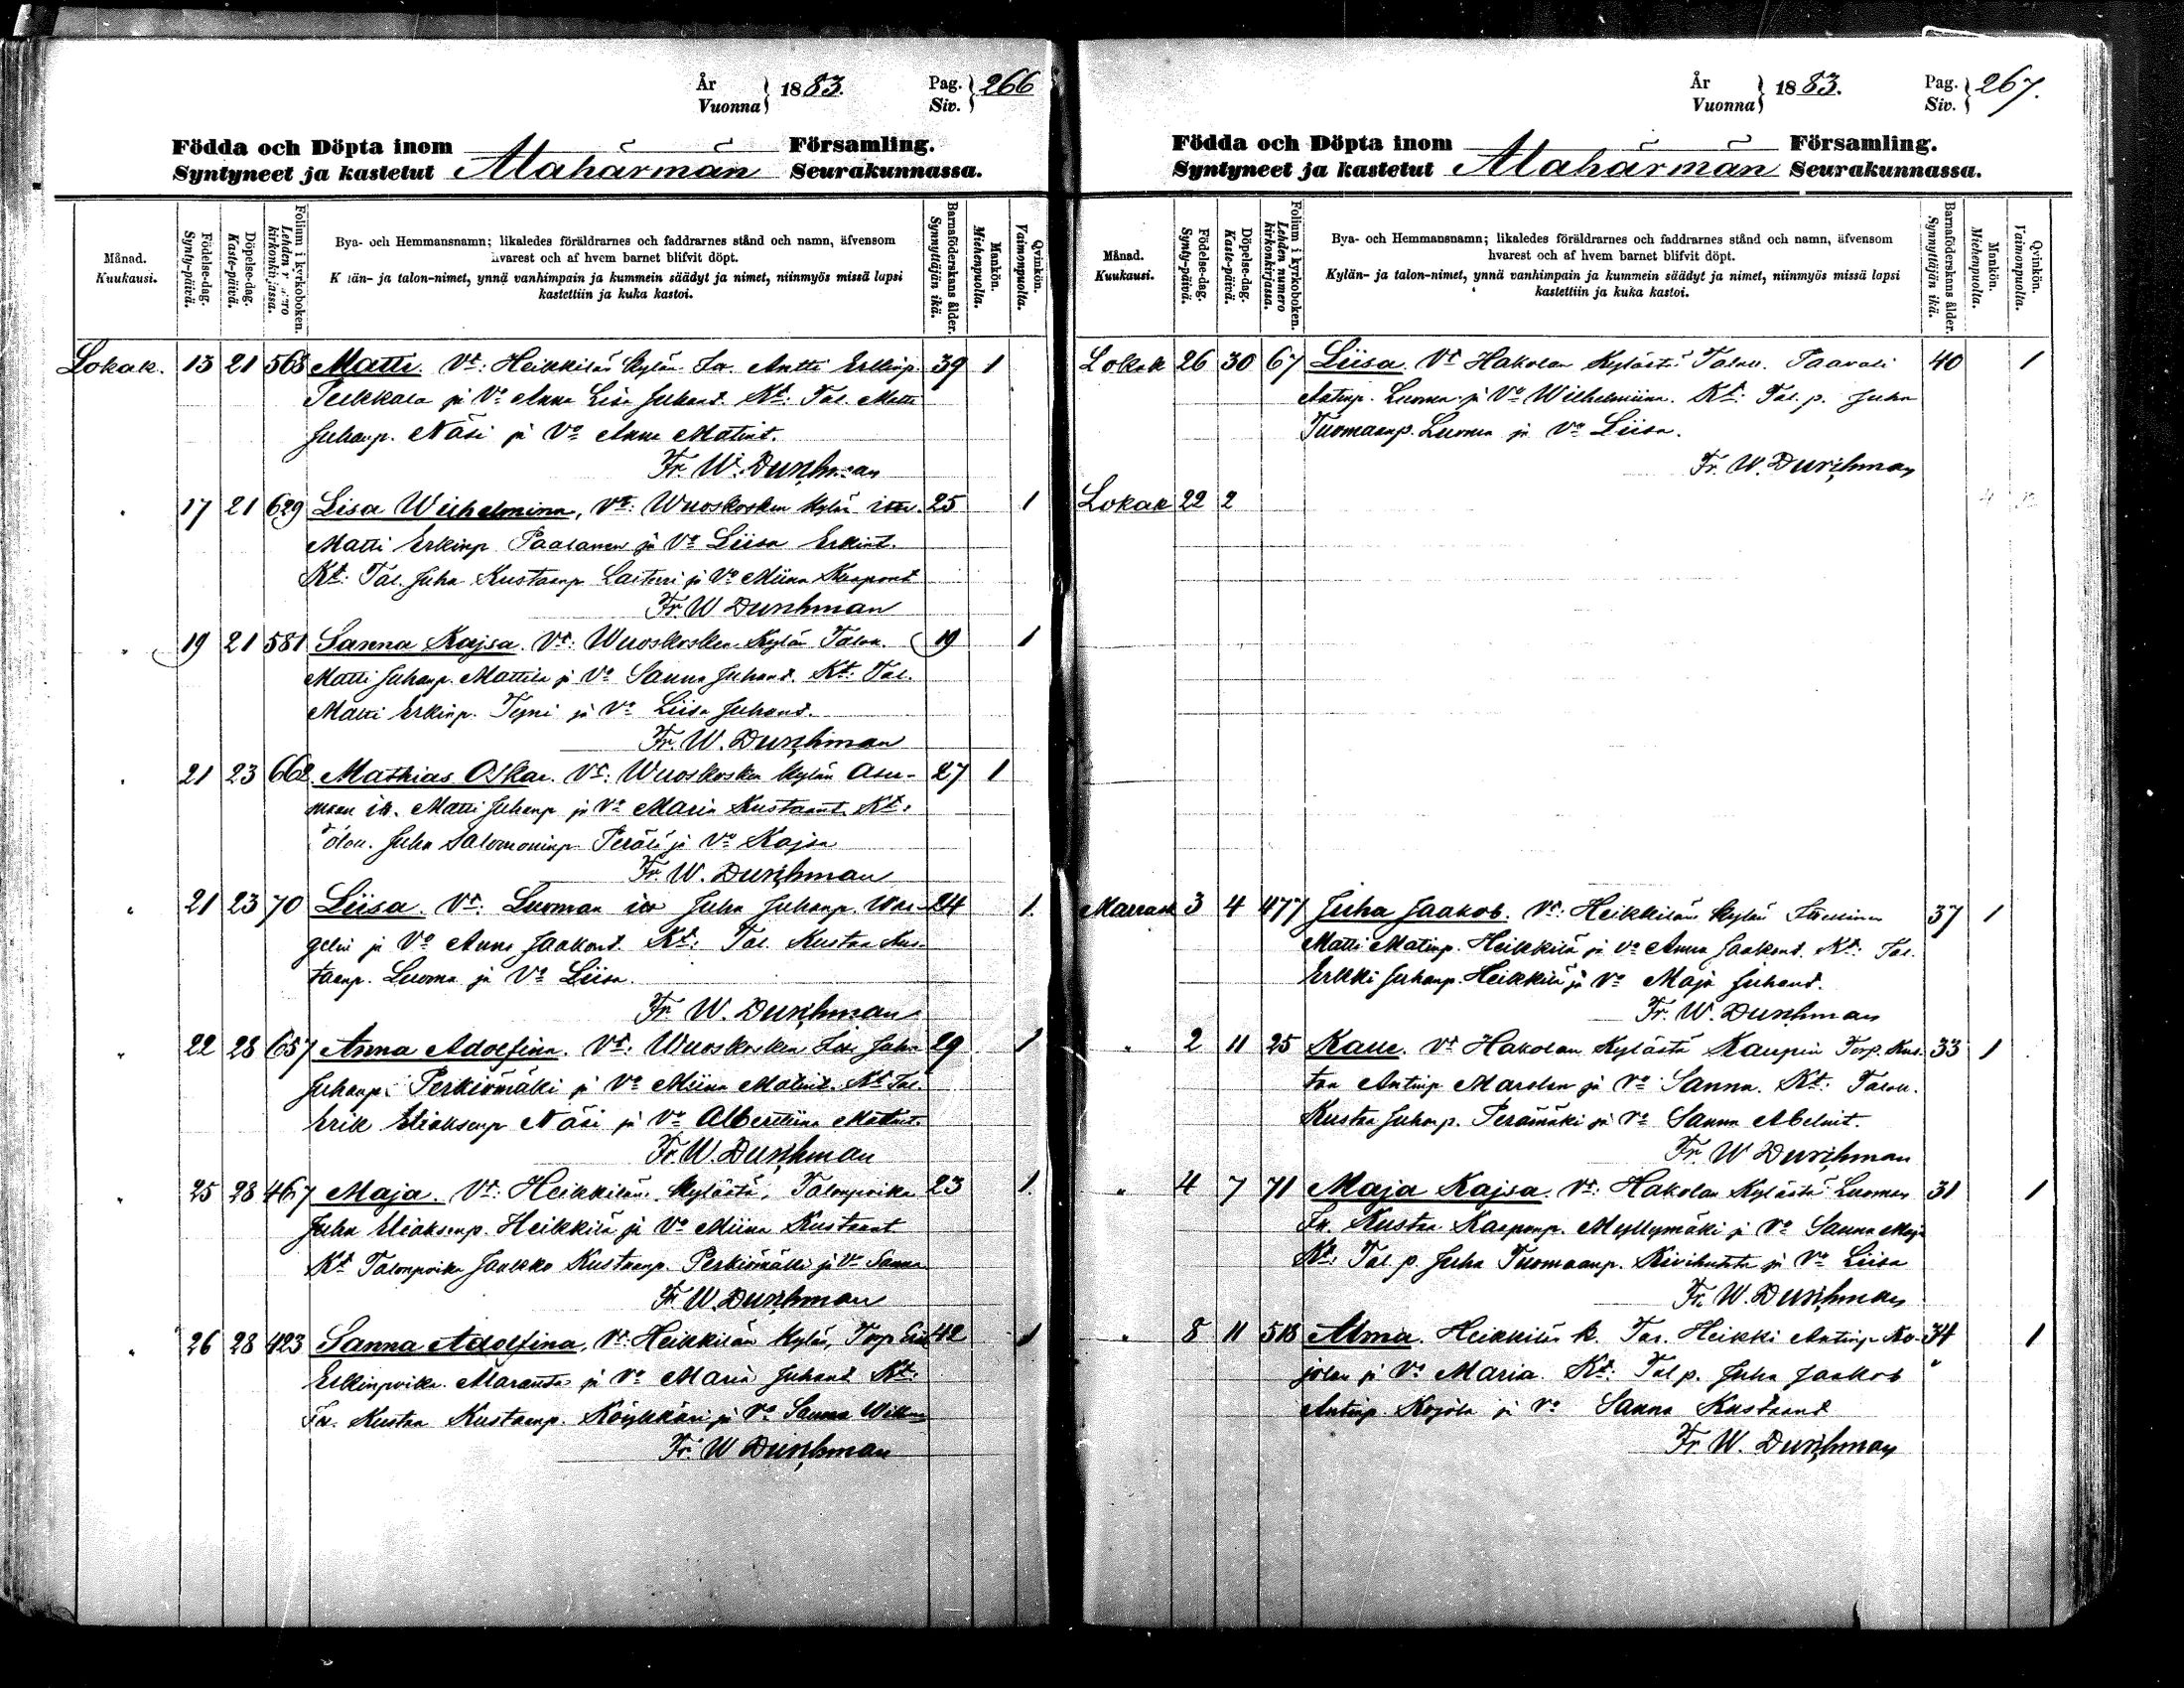 År
Vuonna } 1883.
Pag.
Siv. } 266
Födda och Döpta inom Församling.
Syntyneet ja kastetut Alahärmän Seurakunnassa.
Månad.
Kuukausi.
Födelse-dag.
Synty-päivä.
Döpelse-dag.
Kaste-päivä.
Folium i kyrkoboken.
Lehden numero kirkonkirjassa.
Bya- och Hemmansnamn; likaledes föräldrarnes och faddrarnes stånd och namn, äfvensom
hvarest och af hvem barnet blifvit döpt.
Kylän- ja talon-nimet, ynnä vanhimpain ja kummein säädyt ja nimet, niinmyös missä lapsi
kastettiin ja kuka kastoi.
Barnaföderskans ålder.
Synnyttäjän ikä.
Mankön.
Miehenpuolta.
Qvinkön.
Vaimonpuolta.
Lokak. 13 21 568 Matti. Vt: Heikkilän kylän Antti Erkinp. 39 1
Pelkkala ja Vo Anna Lisa Juhant. Kt: Tal. Matti
Juhanp. Näsi ja Vo Anna Matint.
Fr. W. Durchman
17 21 629 Lisa Wilhelmina, Vt: Wuoskosken kylän 25 1
Matti Erkinp Paalanen ja Vo Liisa Erkint.
Kt: Tal. Juha Kustaanp Laituri ja Vo Miina Kaapont
Fr. W Durchman
19 21 581 Sanna Kajsa. Vt: Wuoskosken Kylän Talon. 19 1
Matti Juhanp. Mattila ja Vo Sanna Juhant. Kt: Tal.
Matti Erkinp. Tyni ja Vo Liisa Juhant.
Fr. W. Durchman
21 23 662 Mathias Oskar. Vt: Wuoskosken kylän Asu- 27 1
Matti Juhanp ja Vo Maria Kustaant Kt:
Juha Salomoninp. Perälä ja Vo Kajsa
Fr. W. Durchman
21 23 70 Liisa. Vt: Luoman Juha Juhanp. 24 1.
ja Vo Anna Jaakont. Kt: Tal. Kustaa Kus-
taanp. Luoma ja Vo Liisa.
Fr. W. Durchman
22 28 657 Anna Adolfina. Vt: Wuoskosken Juha 29 1
Juhanp. Perkiömäki ja Vo Miina Matint. Kt Tal
Erik Eliaksenp Näsi ja Vo Albertiina Matint.
Fr. W. Durchman
25 28 467 Maja. Vt: Heikkilän Kylästä, Talonpoika 23 1.
Juha Eliaksenp. Heikkilä ja Vo Miina Kustaant
Kt Talonpoika Jaakko Kustaanp. Perkiömäki ja Vo Sanna
Fr. W. Durchman
26 28 423 Sanna Adolfina, Vt: Heikkilän kylän, Torp. 42 1
Erkinpoika Maranta ja Vo Maria Juhant Kt:
Kustaa Kustaanp. Köykkäri ja Vo Sanna
Fr. W Durchman
År
Vuonna } 1883.
Pag.
Siv. } 267.
Födda och Döpta inom Församling.
Syntyneet ja kastetut Alahärmän Seurakunnassa.
Månad.
Kuukausi.
Födelse-dag.
Synty-päivä.
Döpelse-dag.
Kaste-päivä.
Folium i kyrkoboken.
Lehden numero kirkonkirjassa.
Bya- och Hemmansnamn; likaledes föräldrarnes och faddrarnes stånd och namn, äfvensom
hvarest och af hvem barnet blifvit döpt.
Kylän- ja talon-nimet, ynnä vanhimpain ja kummein säädyt ja nimet, niinmyös missä lapsi
kastettiin ja kuka kastoi.
Barnaföderskans ålder.
Synnyttäjän ikä.
Mankön.
Miehenpuolta.
Qvinkön.
Vaimonpuolta.
Lokak 26 30 67 Liisa. Vt Hakolan Kylästä Talon. Taavali 40 1
Antinp. Luoma ja Vo Wilhelmiina. Kt: Tal. p. Juha
Tuomaanp. Luoma ja Vo Liisa.
Fr. W. Durchman
Lokak 22 2
Marrask 3 4 477 Juha Jaakob. Vt: Heikkilän kylän 37 1
Matti Matinp. Heikkilä ja Vo Anna Jaakont. Kt: Tal.
Erkki Juhanp. Heikkilä ja Vo Maja Juhant.
Fr. W. Durchman
" 2 11 25 Kalle. Vt Hakolan Kylästä Kaupin Torp. Kus- 33 1
taa Antinp Marolan ja Vo Sanna. Kt: Talon.
Kustaa Juhanp. Perämäki ja Vo Sanna Abelint.
Fr. W Durchman
" 4 7 71 Maja Kajsa. Vt: Hakolan Kylästä Luoman 31 1
Kustaa Kaaponp. Myllymäki ja Vo Sanna Maja
Kt: Tal. p. Juha Tuomaanp. Kivihuhta ja Vo Liisa
Fr. W. Durchman
" 8 11 518 Alma. Heikkilän k. Tal. Heikki Antinp Ko- 34 1
jolan ja Vo Maria. Kt: Tal p. Juha Jaakob "
Antinp. Kojola ja Vo Sanna Kustaant
Fr. W. Durchman